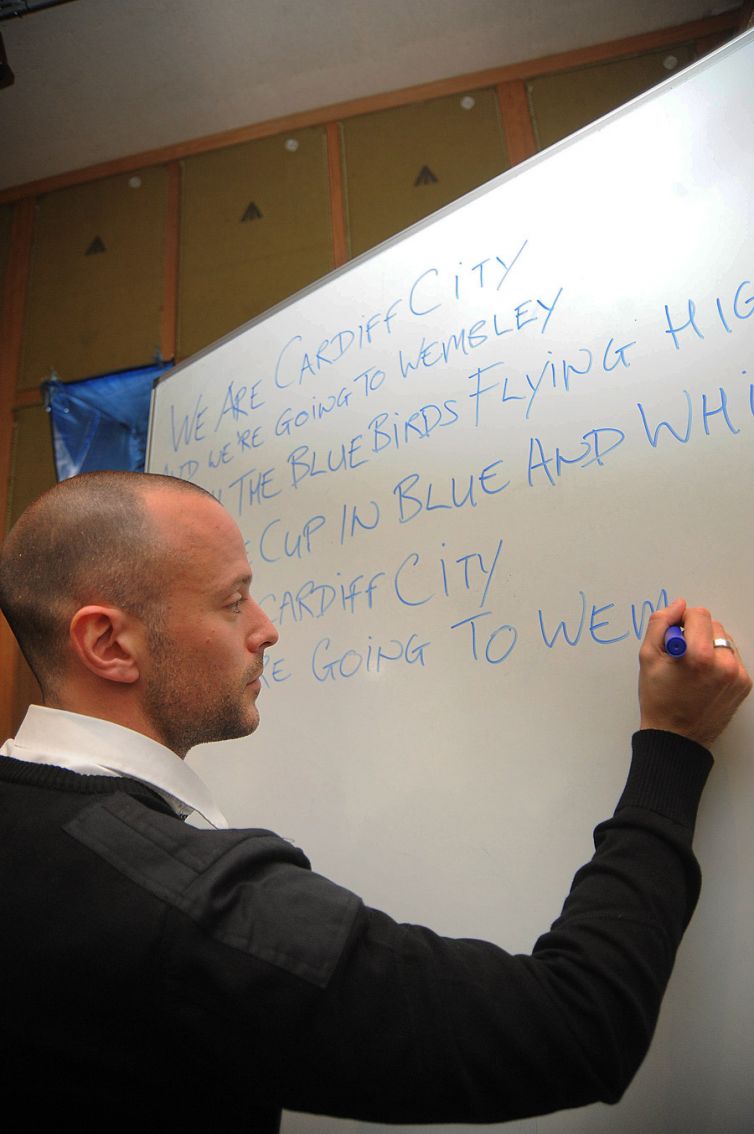 WE ARE CARDIFF CITY
AND WE'RE GOING TO WEMBLEY
THE BLUEBIRDS FLYING HIG
CUP IN BLUE AND WHI
CARDIFF CITY
RE GOING TO WEM